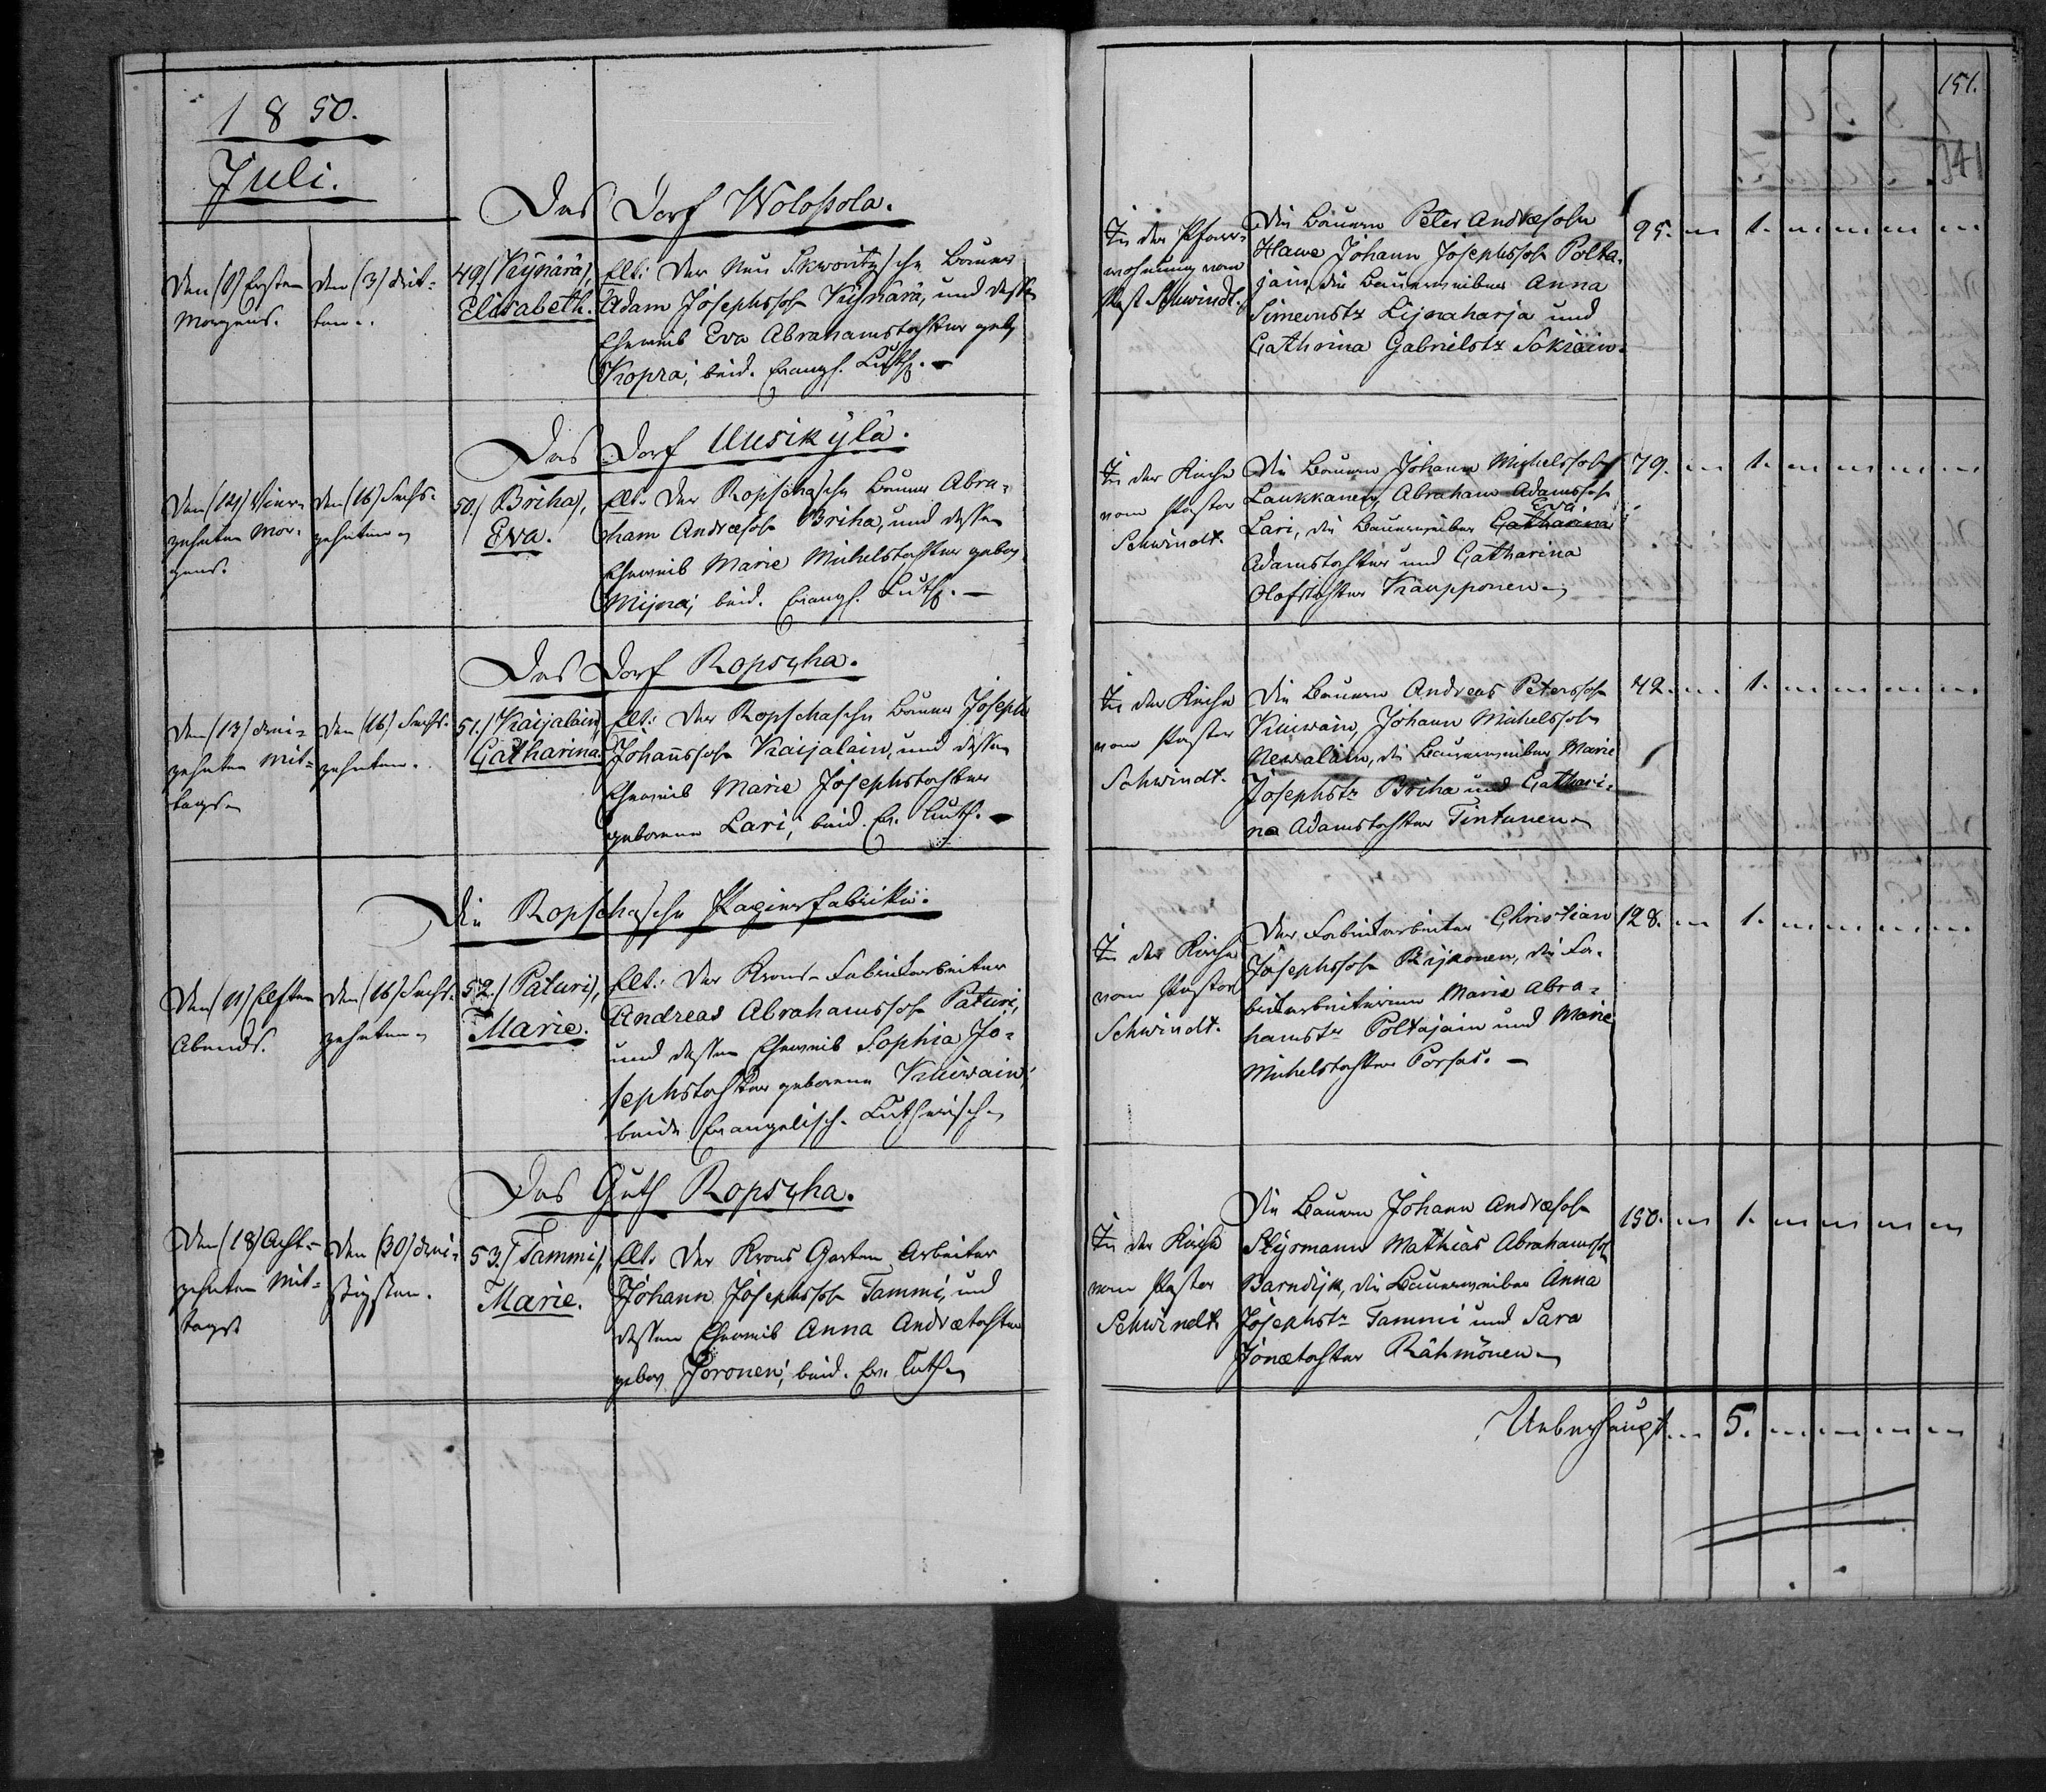 1850.
Juli.
Das Dorf Wolossola.
Den (1) Ersten
Morgens.
den (3) drit-
ten.
49.) Kÿnärä,)
Elisabeth.
Elt: Der Neu Skworitzsche Bauer
Adam Josephssohn Kÿnärä, und dessen
Eheweib Eva Abrahamstochter geb.
Kopra; beid. Evangl. Luth. –
Das Dorf Uusikÿlä.
Den (14) Vier-
zehnten Mor-
gens.
den (16) Sechs-
zehnten
50.) Briha),
Eva.
Elt. Der Ropschasche Bauer Abra-
ham Andræsohn Briha, und dessen
Eheweib Marie Michelstochter gebor.
Mijna; beid. Evangl. Luth. –
Das Dorf Ropscha.
Den (13) drei-
zehnten Mit-
tags
den (16) Sechs-
zehnten.
51.) Kaijalain
Catharina.
Elt: Der Ropschasche Bauer Joseph
Johanssohn Kaijalain, und dessen
Eheweib Marie Josephstochter
geborene Lari; beid. Ev. Luth. –
Die Ropschasche Papierfabrike.
Den (11) Elften
Abends.
den (16) Sechs-
zehnten
52.) Paturi),
Marie.
Elt.: Der Krons-Fabrikarbeiter
Andreas Abrahamssohn Paturi,
und dessen Eheweib Sophia Jo-
sephstochter geborene Kuiwain;
beide Evangelisch-Lutherisch
Das Guth Ropscha.
Den (18) Acht-
zehnten Mit-
tags
den (30) drei-
ßigsten.
53.) Tammi),
Marie.
Elt. Der Krons Garten Arbeiter
Johann Josephssohn Tammi, und
dessen Eheweib Anna Andrætochter
gebor. Joronen; beid. Ev. Luth
151.
In der Pfarr-
wohnung vom
Past Schwindt.
Die Bauern Peter Andræsohn
Hawe Johann Josephssohn Polta-
jain, die Bauerweiber Anna
Simeonstr Lijnaharja und
Catharina Gabrielstr Sokiain.
95. 1.
In der Kirche
vom Pastor
Schwindt.
Die Bauern Johann Michelssohn
Laukkanen, Abraham Adamssohn
Eva
Lari, die Bauerweiber Catharina
Adamstochter und Catharina
Olofstochter Kaupponen
79. 1.
In der Kirche
vom Pastor
Schwindt.
Die Bauern Andreas Peterssohn
Kuiwain, Johann Michelssohn
Newalain, die Bauerweiber Marie
Josephstr Briha und Cathari-
na Adamstochter Tintunen
42. 1.
In der Kirche
vom Pastor
Schwindt.
Der Fabrikarbeiter Christian
Josephssohn Rijkonen, die Fa-
brikarbeiterinnen Maria Abra-
hamstr Poltajain und Marie
Michelstochter Porsas. –
128. 1.
In der Kirche
vom Pastor
Schwindt
Die Bauern Johann Andræsohn
Stÿrmann Mathias Abrahamssohn
Barndijk, die Bauerweiber Anna
Josephstr Tammi und Sara
Jonætochter Rähmönen
150. 1.
Ueberhaupt 5.